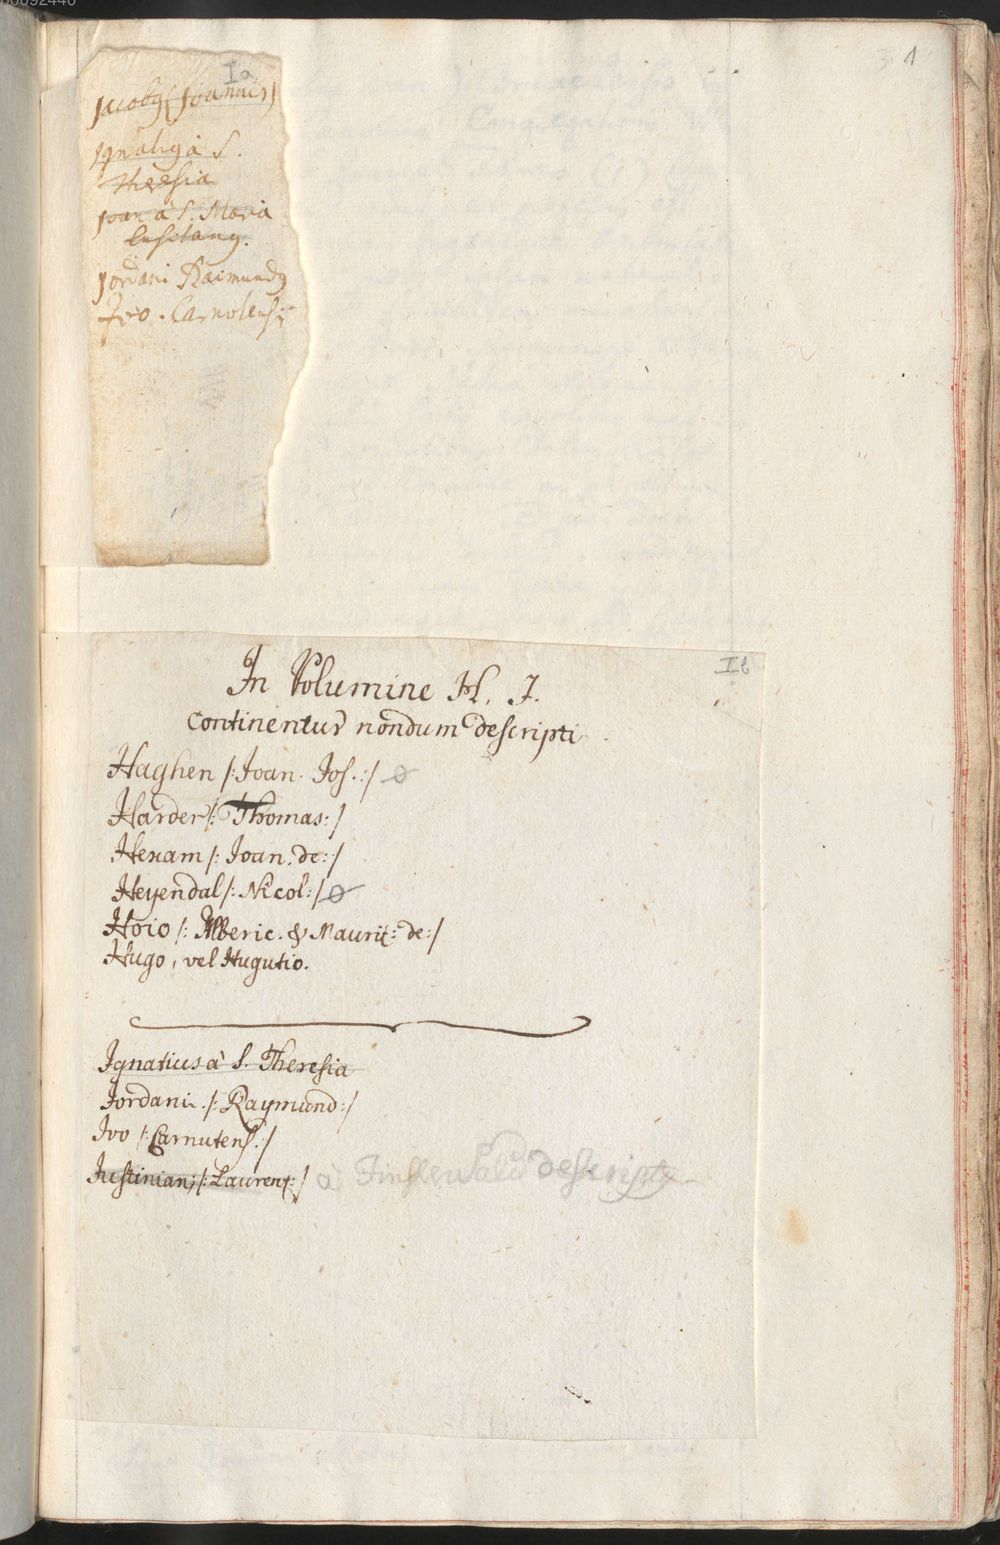 1
Ia
Jacobus (Joannes)
Ignatius à S.
Theresia
Joan à S. Maria
Lusitanus.
Jordani Raimundus
Ivo. Carnotensis
Ib
In Volumine H. J.
continentur nondum descripti
Haghen /: Joan. Jos. :/ ø
Harder /: Thomas :/
Hexam /: Joan. de :/
Heyendal /: Nicol: :/ ø
Hoio /: Alberic. & Maurit: de :/
Hugo, vel Hugutio.
Ignatius à S. Theresia
Jordani. /: Raymund: /
Ivo /: Carnutens. :/
Justiniani /: Laurent: / à descripta